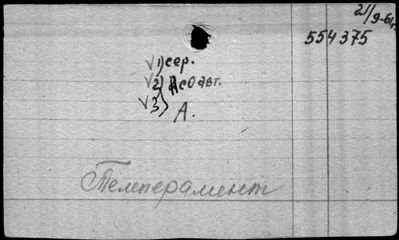 21/9-61г.
554375
√1) сер.
√2) Неоавт.
√3) А.
Темперамент